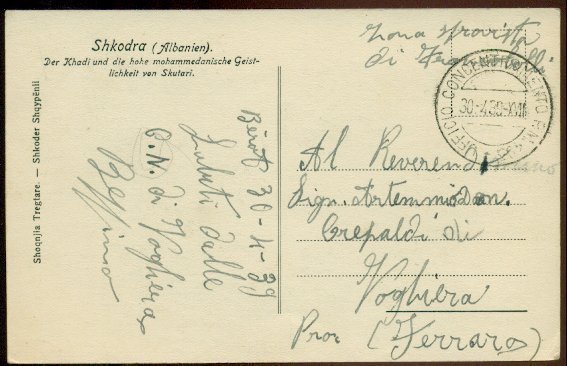 Shkodra (Albanien).
Der Khadi und die hohe mohammedanische Geist-
lichkeit von Skutari.
Shoqnjia Tregtare. — Shkoder Shqypënii
Zona sprovista
di Francobolli.
UFFICIO CONCENTRAMENTO P.M.
30.4.39.XVII
Berat 30-4-39
Saluti dalle
C.N. di Voghiera
Al Reverendo
Sign. Artemmio Don.
Crepaldi di
Voghiera
Prov (Ferrara)